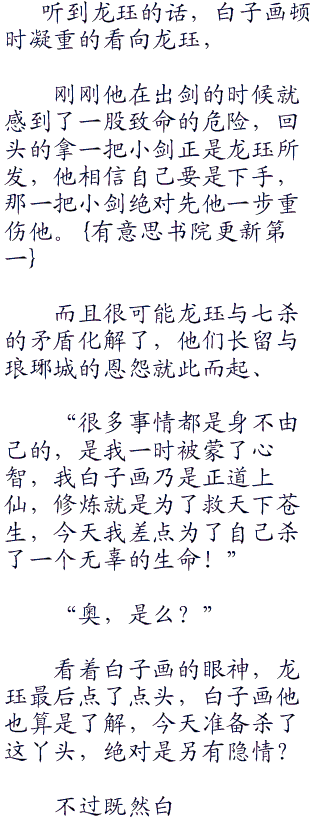 听到龙珏的话，白子画顿
时凝重的看向龙珏，
刚刚他在出剑的时候就
感到了一股致命的危险，回
头的拿一把小剑正是龙珏所
发，他相信自己要是下手，
那一把小剑绝对先他一步重
伤他。{有意思书院更新第
一}
而且很可能龙珏与七杀
的矛盾化解了，他们长留与
琅琊城的恩怨就此而起、
“很多事情都是身不由
己的，是我一时被蒙了心
智，我白子画乃是正道上
仙，修炼就是为了救天下苍
生，今天我差点为了自己杀
了一个无辜的生命！”
“奥，是么？”
看着白子画的眼神，龙
珏最后点了点头，白子画他
也算是了解，今天准备杀了
这丫头，绝对是另有隐情？
不过既然白